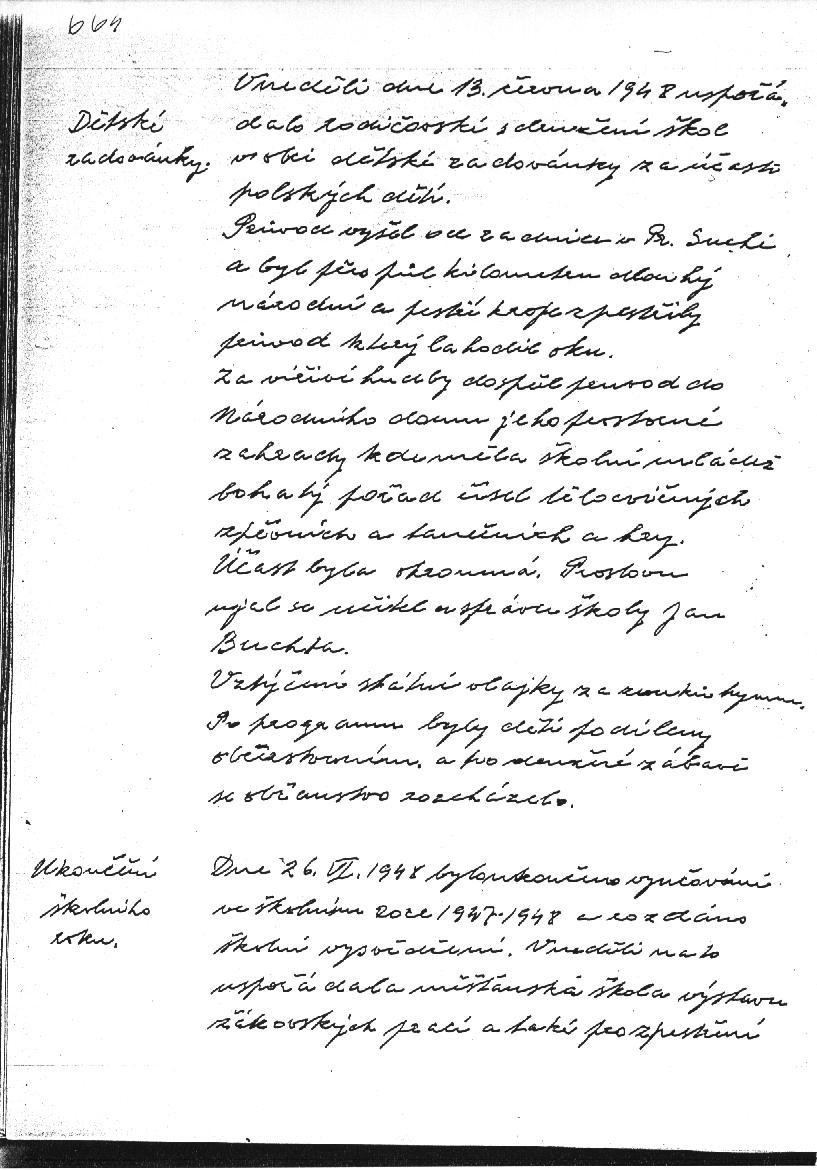 664
V neděli dne 13. června 1948 uspořá-
Dětské
radovánky.
dalo rodičovské sdružení škol
v obci dětské radovánky za účasti
polských dětí.
Průvod vyšel od radnice v Pr. Suché
a byl přes půl kilometru dlouhý
národní a pestré kroje zpestřily
průvod který lahodil oku.
Za víření hudby dospěl průvod do
Národního domu jeho prostorné
zahrady kde měla školní mládež
bohatý pořad čísel tělocvičných
zpěvních a tanečních a hry.
Účast byla ohromná. Proslovu
ujal se učitel a správce školy Jan
Buchta.
Vztýčení státní vlajky za zvuků hymn.
Po programu byly děti poděleny
občerstvením. a po družné zábavě
se občanstvo rozcházelo.
Ukončení
školního
roku.
Dne 26. VI. 1948 bylo ukončeno vyučování
ve školním roce 1947-1948 a rozdáno
školní vysvědčení. V neděli na to
uspořádala měšťanská škola výstavu
žákovských prací a také pro zpestření